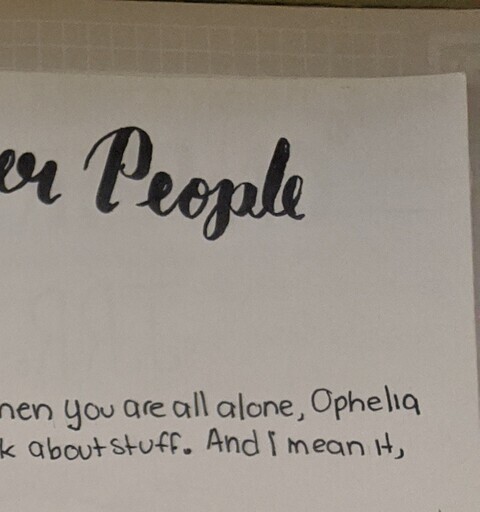 er People
hen you are all alone, Ophelia
k about stuff. And I mean it,